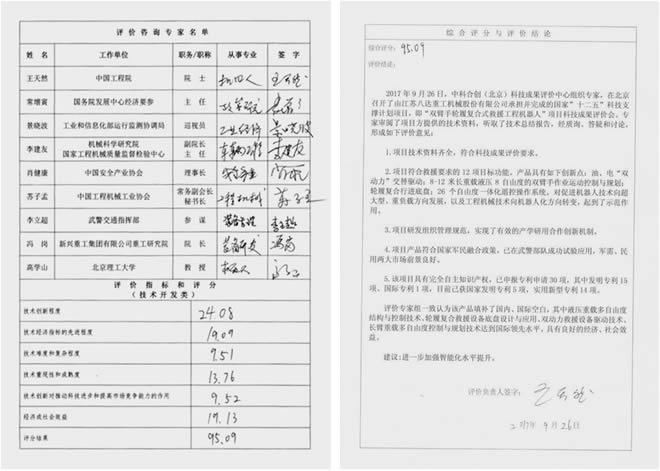 评价咨询专家名单
姓名 工作单位 职务/职称 从事专业 签字
王天然 中国工程院 院士 机器人 王天然
常增寅 国务院发展中心经济要参 主任 政策研究
景晓波 工业和信息化部运行监测协调局 巡视员 工业经济 景晓波
李建友 机械科学研究院 国家工程机械质量监督检中心 副院长 主任 车辆工程 李建友
肖健康 中国安全产业协会 理事长
苏子孟 中国工程机械工业协会 常务副会长 秘书长 工程机械 苏子孟
李立超 武警交通指挥部 参谋 装备管理 李立超
冯岗 新兴重工集团有限公司重工研究院 院长 装备研发 冯岗
高学山 北京理工大学 教授 机器人
评价指标和评分
(技术开发类)
技术创新程度 24.08
技术经济指标的先进程度 19.09
技术难度和复杂程度 9.51
技术重现性和成熟度 13.76
技术创新对推动科技进步和提高市场竞争能力的作用 9.52
经济或社会效益 19.13
评分结果 95.09
综合评分与评价结论
综合评分: 95.09
评价结论:
2017年9月26日,中科合创(北京)科技成果评价中心组织专家,在北京
召开了由江苏八达重工机械股份有限公司承担并完成的国家"十二五"科技支
撑计划项目,即"双臂手轮履复合式救援工程机器人"项目科技成果评价会。专
家审阅了项目方提供的技术资料,听取了技术总结报告,经质询、答疑和讨论,
形成如下评价意见:
1.项目技术资料齐全,符合科技成果评价要求。
2.项目符合救援要求的12项目标功能。产品具有如下创新点:油、电"双
动力"交替驱动;8-12米长重载液压8自由度的双臂手作业运动控制与规划;
轮履复合行进底盘;26个自由度一体化遥控操作系统。对促进机器人技术向超大
型、重负载方向发展,以及工程机械技术向机器人化方向转变,起到了示范作
用。
3.项目研发组织管理规范,实现了有效的产学研用合作创新机制。
4.项目产品符合国家军民融合政策,已在武警部队成功试验应用,军需、民
用两大市场前景良好。
5.该项目具有完全自主知识产权,已申报专利申请30项,其中发明专利15
项、国际专利1项,目前已获国家发明专利5项,实用新型专利14项。
评价专家组一致认为该产品填补了国内、国际空白,其中液压重载多自由度
结构与控制技术、轮履复合救援设备底盘设计与应用、双动力救援设备驱动技术、
长臂重载多自由度控制与规划技术达到国际领先水平,具有良好的经济、社会效
益。
建议:进一步加强智能化水平提升。
评价负责人签字: 王天然
2017年9月26日